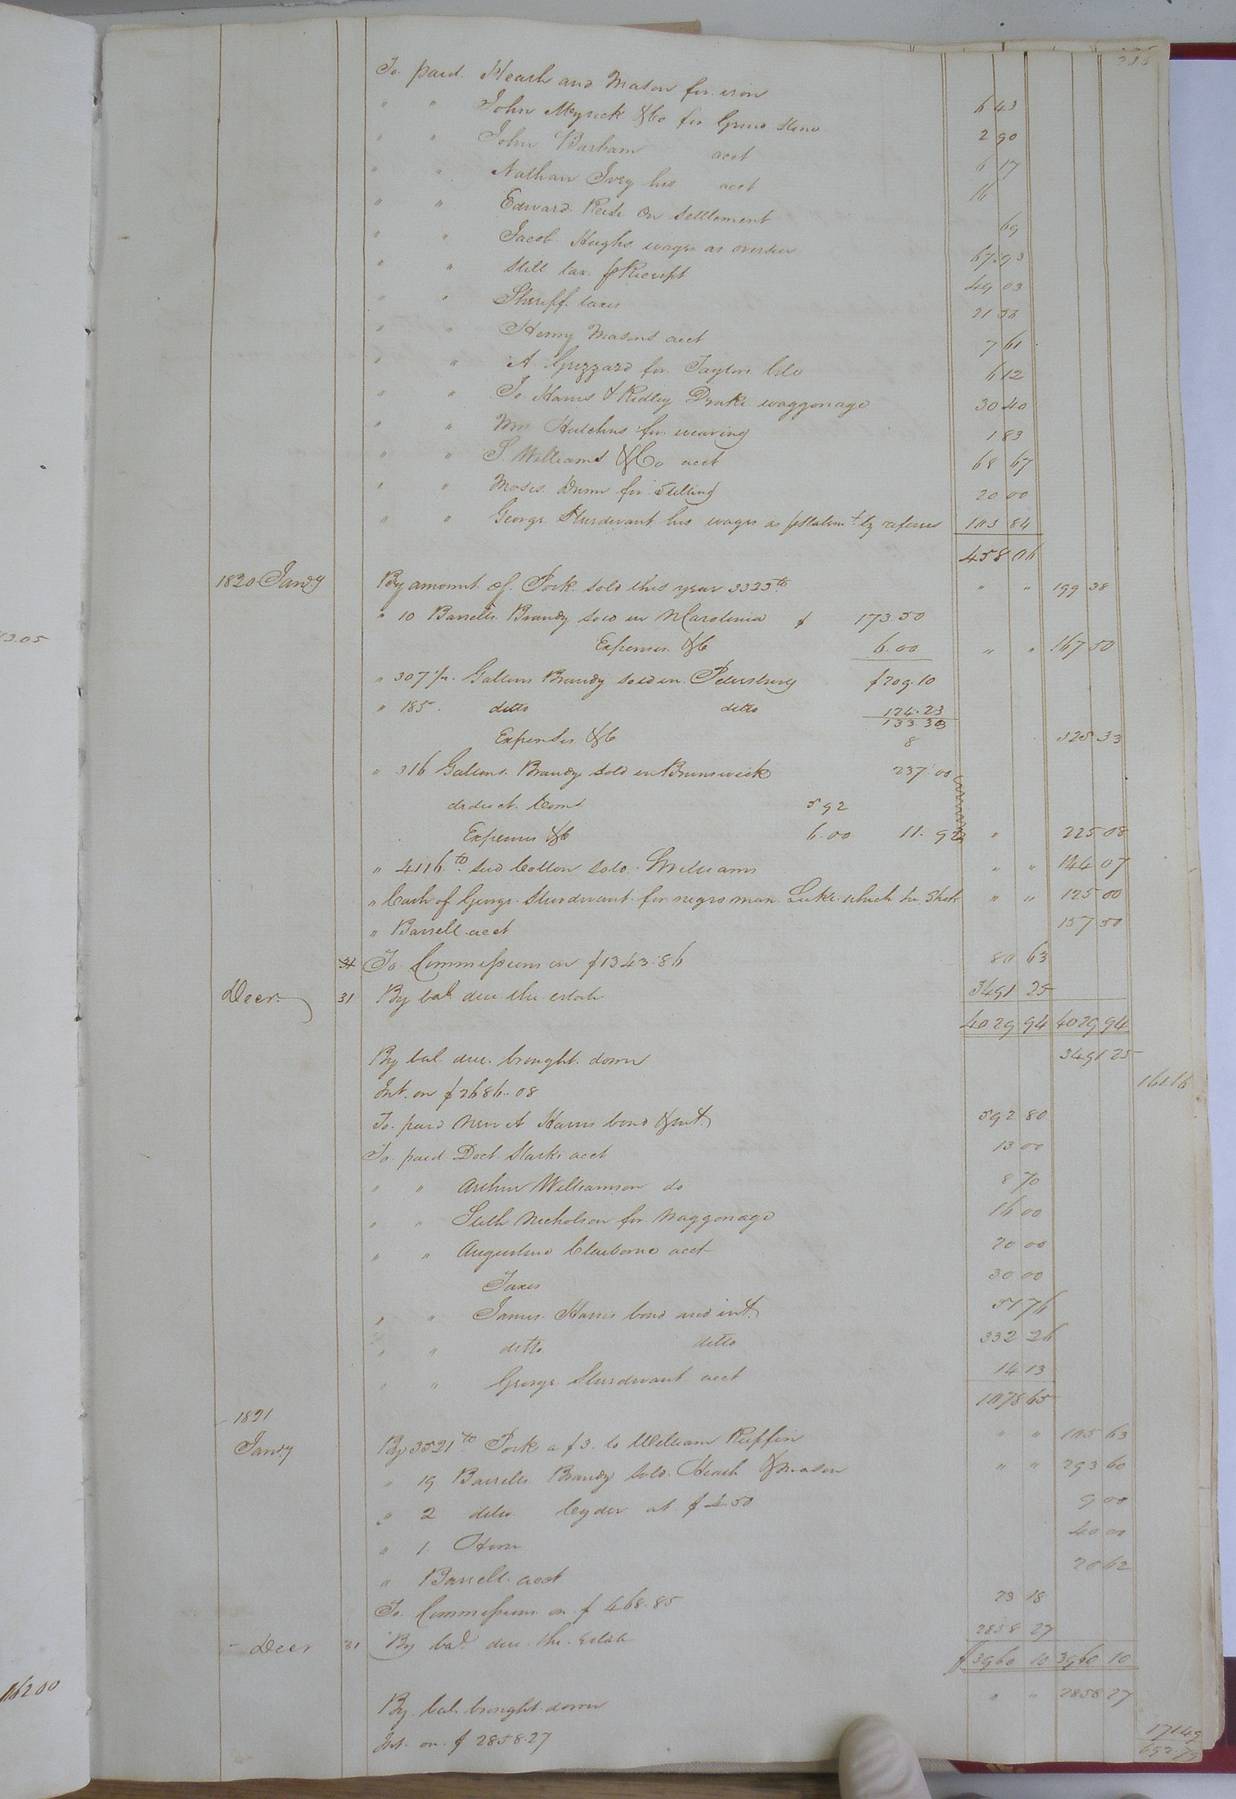 To paid Heath and Mason for iron 6 43
" " John Myrick &Co for Grind stone 2 90
" " John Barham acct 6 17
" " Nathan Ivey his acct 16
" " Edward on settlement 69
" " Jacob Hughs wages as overseer 67.93
" " Still tax Receipt 49 03
" " Sheriff taxes 21
" " Henry Masons acct 7 61
" " A. Grizzard for Taylors 6 12
" " To Harris & Ridley Drake waggonage 30 40
" " Wm Hutchins for weaving 1 83
" " S. Williams &Co acct 68 67
" " Moses Dunn for Stilling 20 00
" " George Sturdivant his wages as by referees 103 84
458 06
1820 Jany By amount of Pork sold this year 3323 lb " " 199 38
" 10 Barrells Brandy sold in N Carolina $ 173.50
Expenses &c 6.00 " " 167 50
" 307 Gallons Brandy sold in Petersburg $209.10
" 185 ditto ditto 124.23
333 33
Expenses &c 8 325 33
" 316 Gallons Brandy sold in Brunswick 237.00
deduct Coms 5 92
Expenses &c 6.00 11.92 " 225 08
" 4116 lb Seed Cotton sold Williams " " 144 07
" Cash of George Sturdivant for negro man Luke which he Shot " " 125 00
" Barrell acct 157 50
31 To Commissions on $1343.86 80 63
Decr 31 By bal due the estate 3491 25
4029 94 4029 94
By bal due brought down 3491 25
Int. on $2686.08 161.16
To paid A Harris bond &int 592 80
To paid Doct Starks acct 13 00
" " Arthur Williamson do 8 70
" " Seth Nicholson for Waggonage 16 00
" " Augustine Claiborne acct 20 00
Taxes 30 00
" " James Harris bond and int 51 76
" " ditto ditto 332 26
" " George Sturdivant acct 14 13
1078 65
1821
Jany By 3521 lb Pork a $3. to William Ruffin " " 105 63
" 19 Barrells Brandy sold Heath &Mason " " 293 60
" 2 ditto Cyder at $4.50 9 00
" 1 Horse 40 00
" Barrell acct 20 62
To Commissions on $468.85 23 18
Decr 31 By bal due the Estate 2858 27
$3960 10 3960 10
By bal. brought down " " 2858 27
Int. on $2858.27 171.49